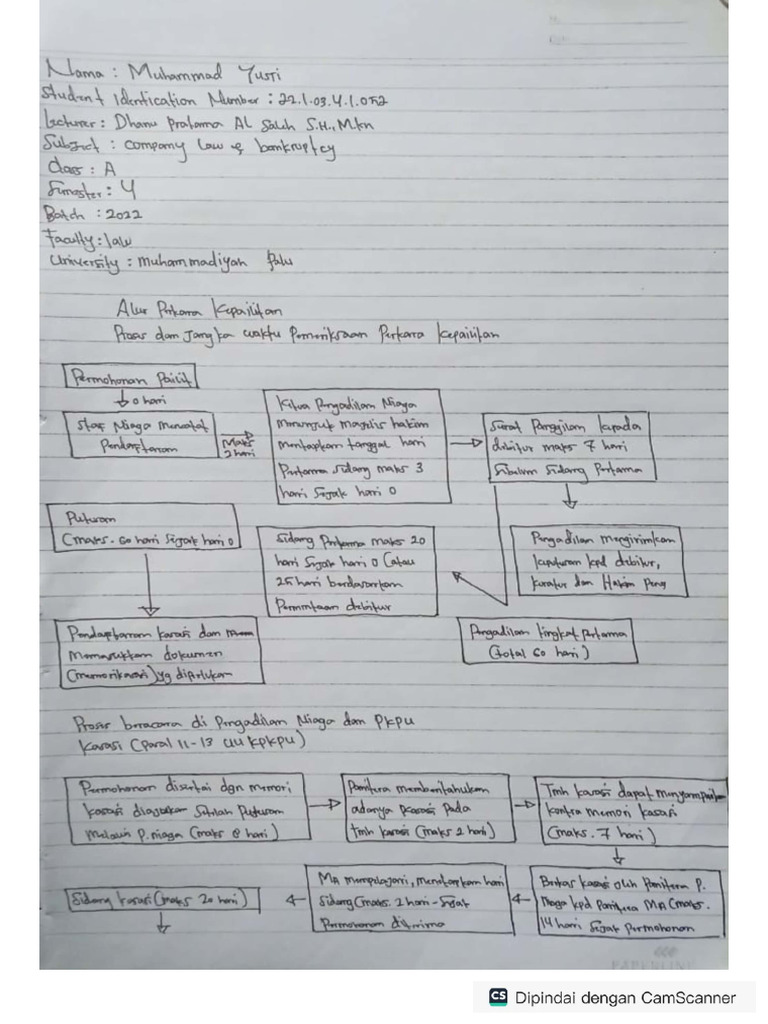 Nama : Muhammad Yusri
Student Identication Number : 22.1.03.4.1.052
Lecturer : Dhanu Pratama Al Salih S.H., M.kn
Subject : company law & bankruptcy
Class : A
Semester : 4
Batch : 2022
Faculty : law
University : muhammadiyah Palu
Alur Perkara Kepailitan
Proses dan Jangka waktu Pemeriksaan Perkara Kepailitan
Permohonan Pailit
0 hari
Staf Niaga mencatat
Pendaftaran
Maks
2 hari
Ketua Pengadilan Niaga
menunjuk majelis hakim
menetapkan tanggal hari
Pertama sidang maks 3
hari Sejak hari 0
Surat Panggilan kepada
debitur maks 7 hari
Sebelum Sidang Pertama
Putusan
(maks. 60 hari Sejak hari 0
Sidang Pertama maks 20
hari Sejak hari 0 (atau
25 hari berdasarkan
Permintaan debitur
Pengadilan mengirimkan
keputusan kpd debitur,
kurator dan Hakim Peng
Pendaftaran kasasi dan
Memasukkan dokumen
(memori kasasi) yg diperlukan
Pengadilan tingkat Pertama
(total 60 hari)
Proses beracara di Pengadilan Niaga dan PKPU
Kasasi (Pasal 11-13 UU KPKPU)
Permohonan disertai dgn memori
kasasi diajukan Setelah Putusan
melalui P. niaga (maks 8 hari)
Panitera memberitahukan
adanya kasasi Pada
tmh kasasi (maks 2 hari)
Tmh kasasi dapat menyampaikan
kontra memori kasasi
(maks. 7 hari)
Berkas kasasi oleh Panitera P.
Niaga kpd Panitera MA (maks.
14 hari Sejak Permohonan
MA mempelajari, menetapkan hari
Sidang (maks. 2 hari - Sejak
Permohonan diterima
Sidang kasasi (maks 20 hari)
PAPERLINE
CS Dipindai dengan CamScanner